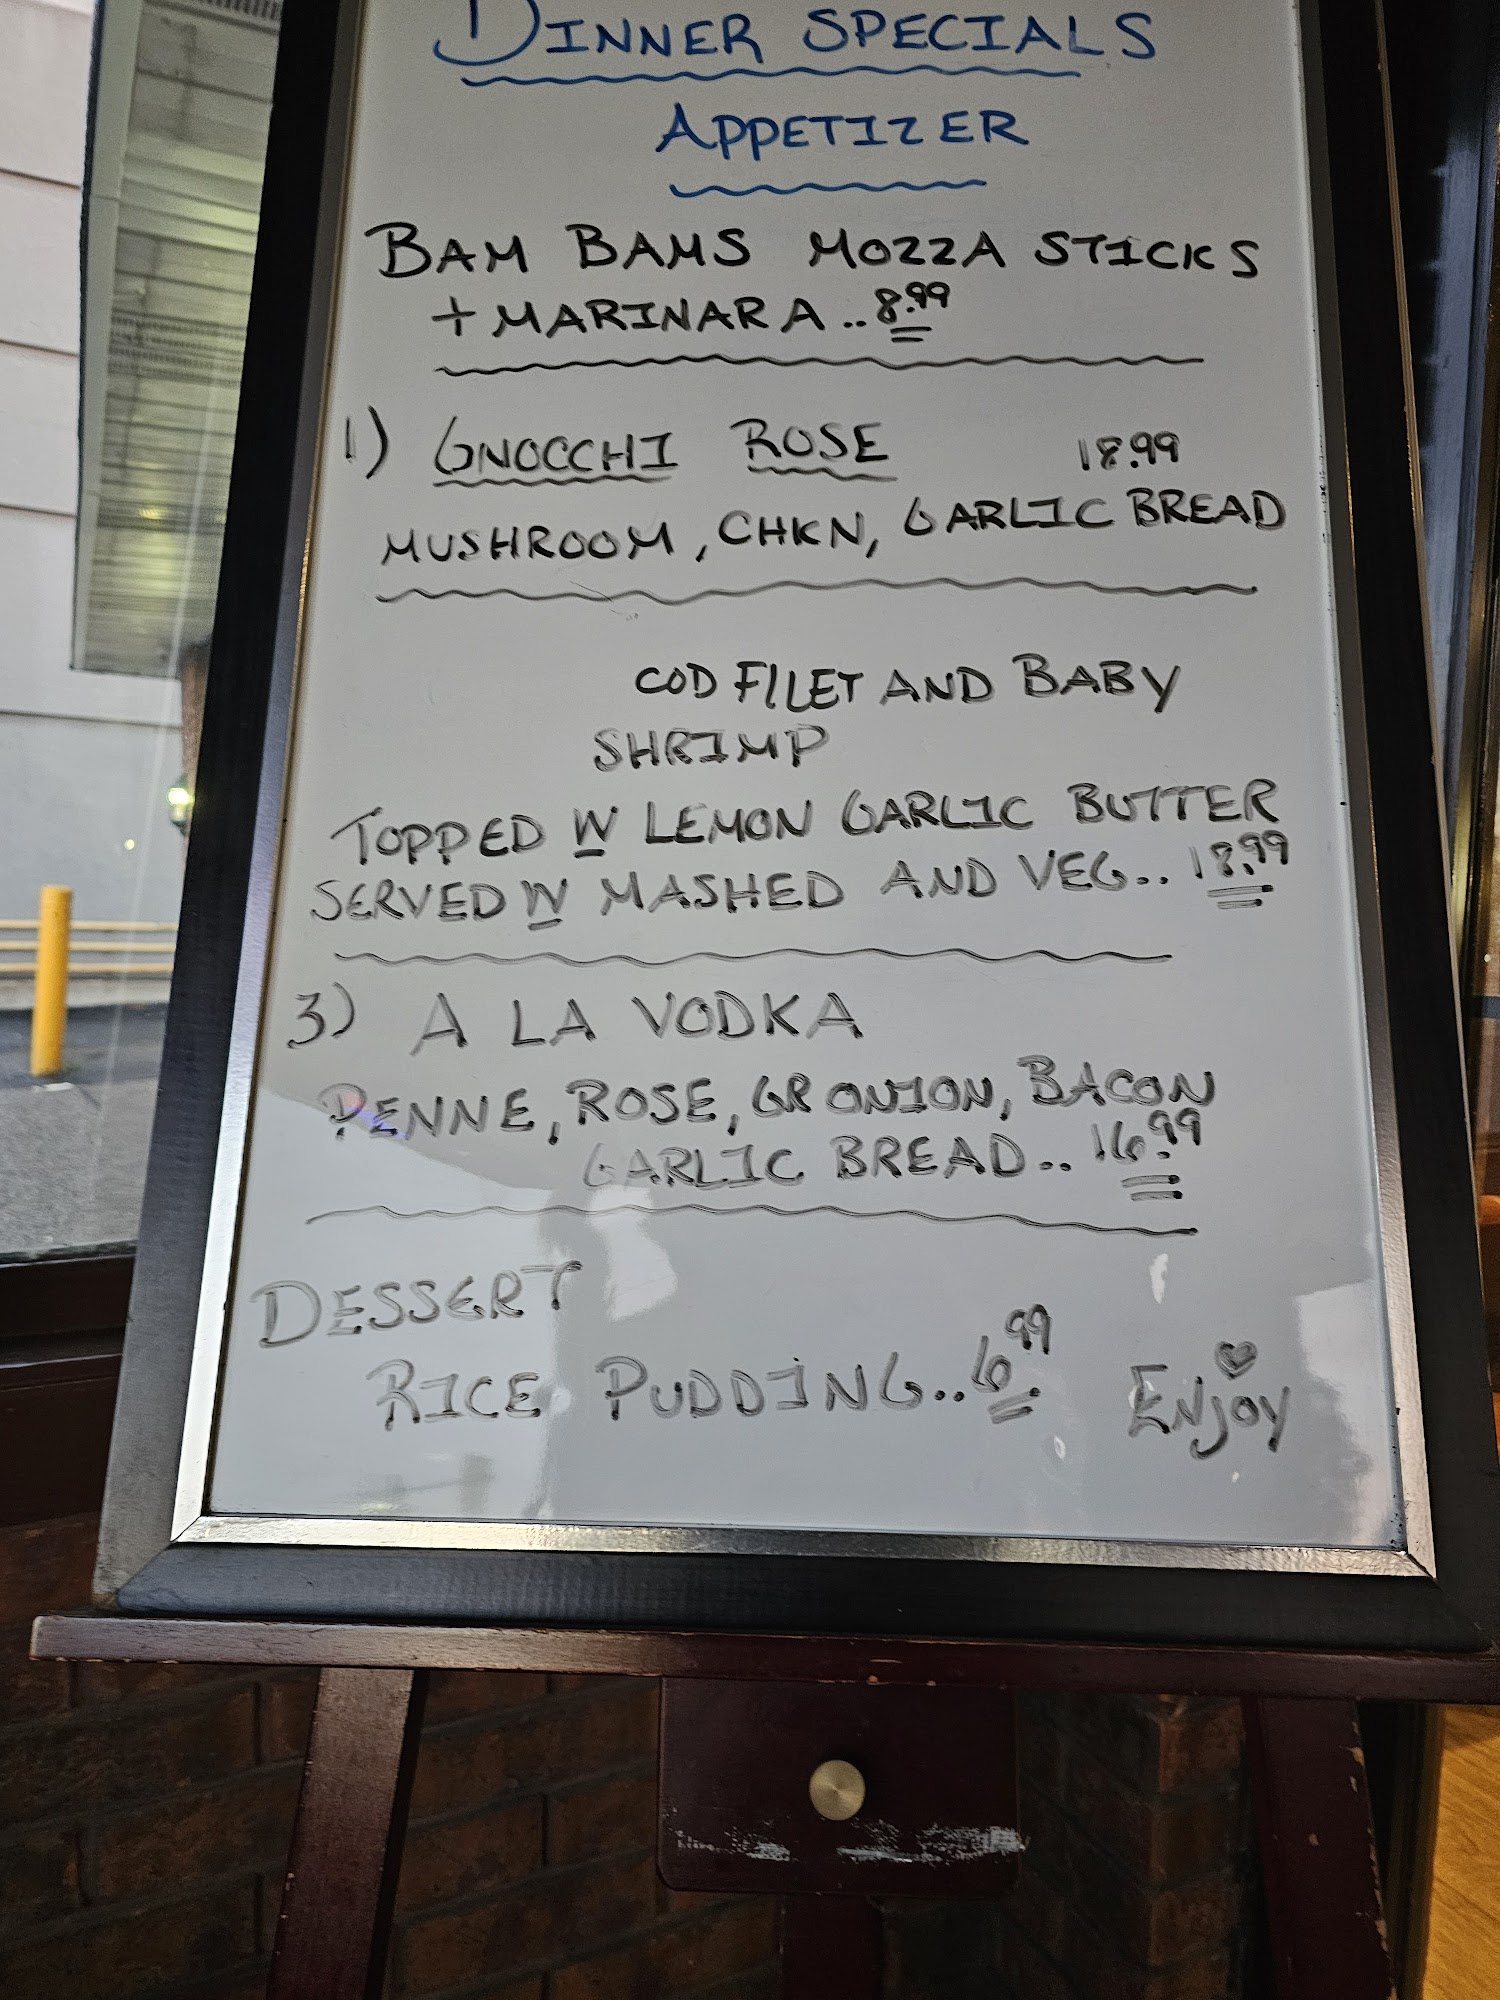 DINNER SPECIALS
APPETIZER
BAM BAMS MOZZA STICKS
+ MARINARA.. 8.99
1) GNOCCHI ROSE 18.99
MUSHROOM, CHKN, GARLIC BREAD
COD FILET AND BABY
SHRIMP
TOPPED W LEMON GARLIC BUTTER
SERVED W MASHED AND VEG.. 18.99
3) A LA VODKA
PENNE, ROSE, GR ONION, BACON
GARLIC BREAD.. 16.99
DESSERT
RICE PUDDING.. 6.99 ENJOY